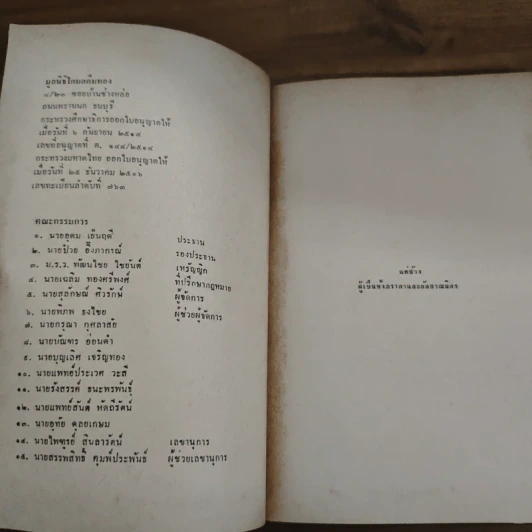 มูลนิธิโกมลคีมทอง
๔/๒๓ ซอยบ้านช่างหล่อ
ถนนพรานนก ธนบุรี
กระทรวงศึกษาธิการออกใบอนุญาตให้
เมื่อวันที่ ๖ กันยายน ๒๕๑๔
เลขที่อนุญาตที่ ต. ๑๔๔/๒๕๑๔
กระทรวงมหาดไทย ออกใบอนุญาตให้
เมื่อวันที่ ๒๕ ธันวาคม ๒๕๑๖
เลขทะเบียนลำดับที่ ๗๖๓
คณะกรรมการ
๑. นายอุดม เย็นฤดี ประธาน
๒. นายป๋วย อึ๊งภากรณ์ รองประธาน
๓. ม.ร.ว. พัฒนไชย ไชยันต์ เหรัญญิก
๔. นายเฉลิม ทองศรีพงศ์ ที่ปรึกษากฎหมาย
๕. นายสุลักษณ์ ศิวรักษ์ ผู้จัดการ
๖. นายพิภพ ธงไชย ผู้ช่วยผู้จัดการ
๗. นายกรุณา กุศลาสัย
๘. นายบัณฑร อ่อนดำ
๙. นายบุญเลิศ เจริญทอง
๑๐. นายแพทย์ประเวศ วะสี
๑๑. นายรังสรรค์ ธนะพรพันธุ์
๑๒. นายแพทย์สันต์ หัตถีรัตน์
๑๓. นายอุทัย ดุลยเกษม
๑๔. นายไพฑูรย์ สินลารัตน์ เลขานุการ
๑๕. นายสรรพสิทธิ์ คุมพ์ประพันธ์ ผู้ช่วยเลขานุการ
แด่ป๋วย
ผู้เป็นทั้งภราดาและกัลยาณมิตร